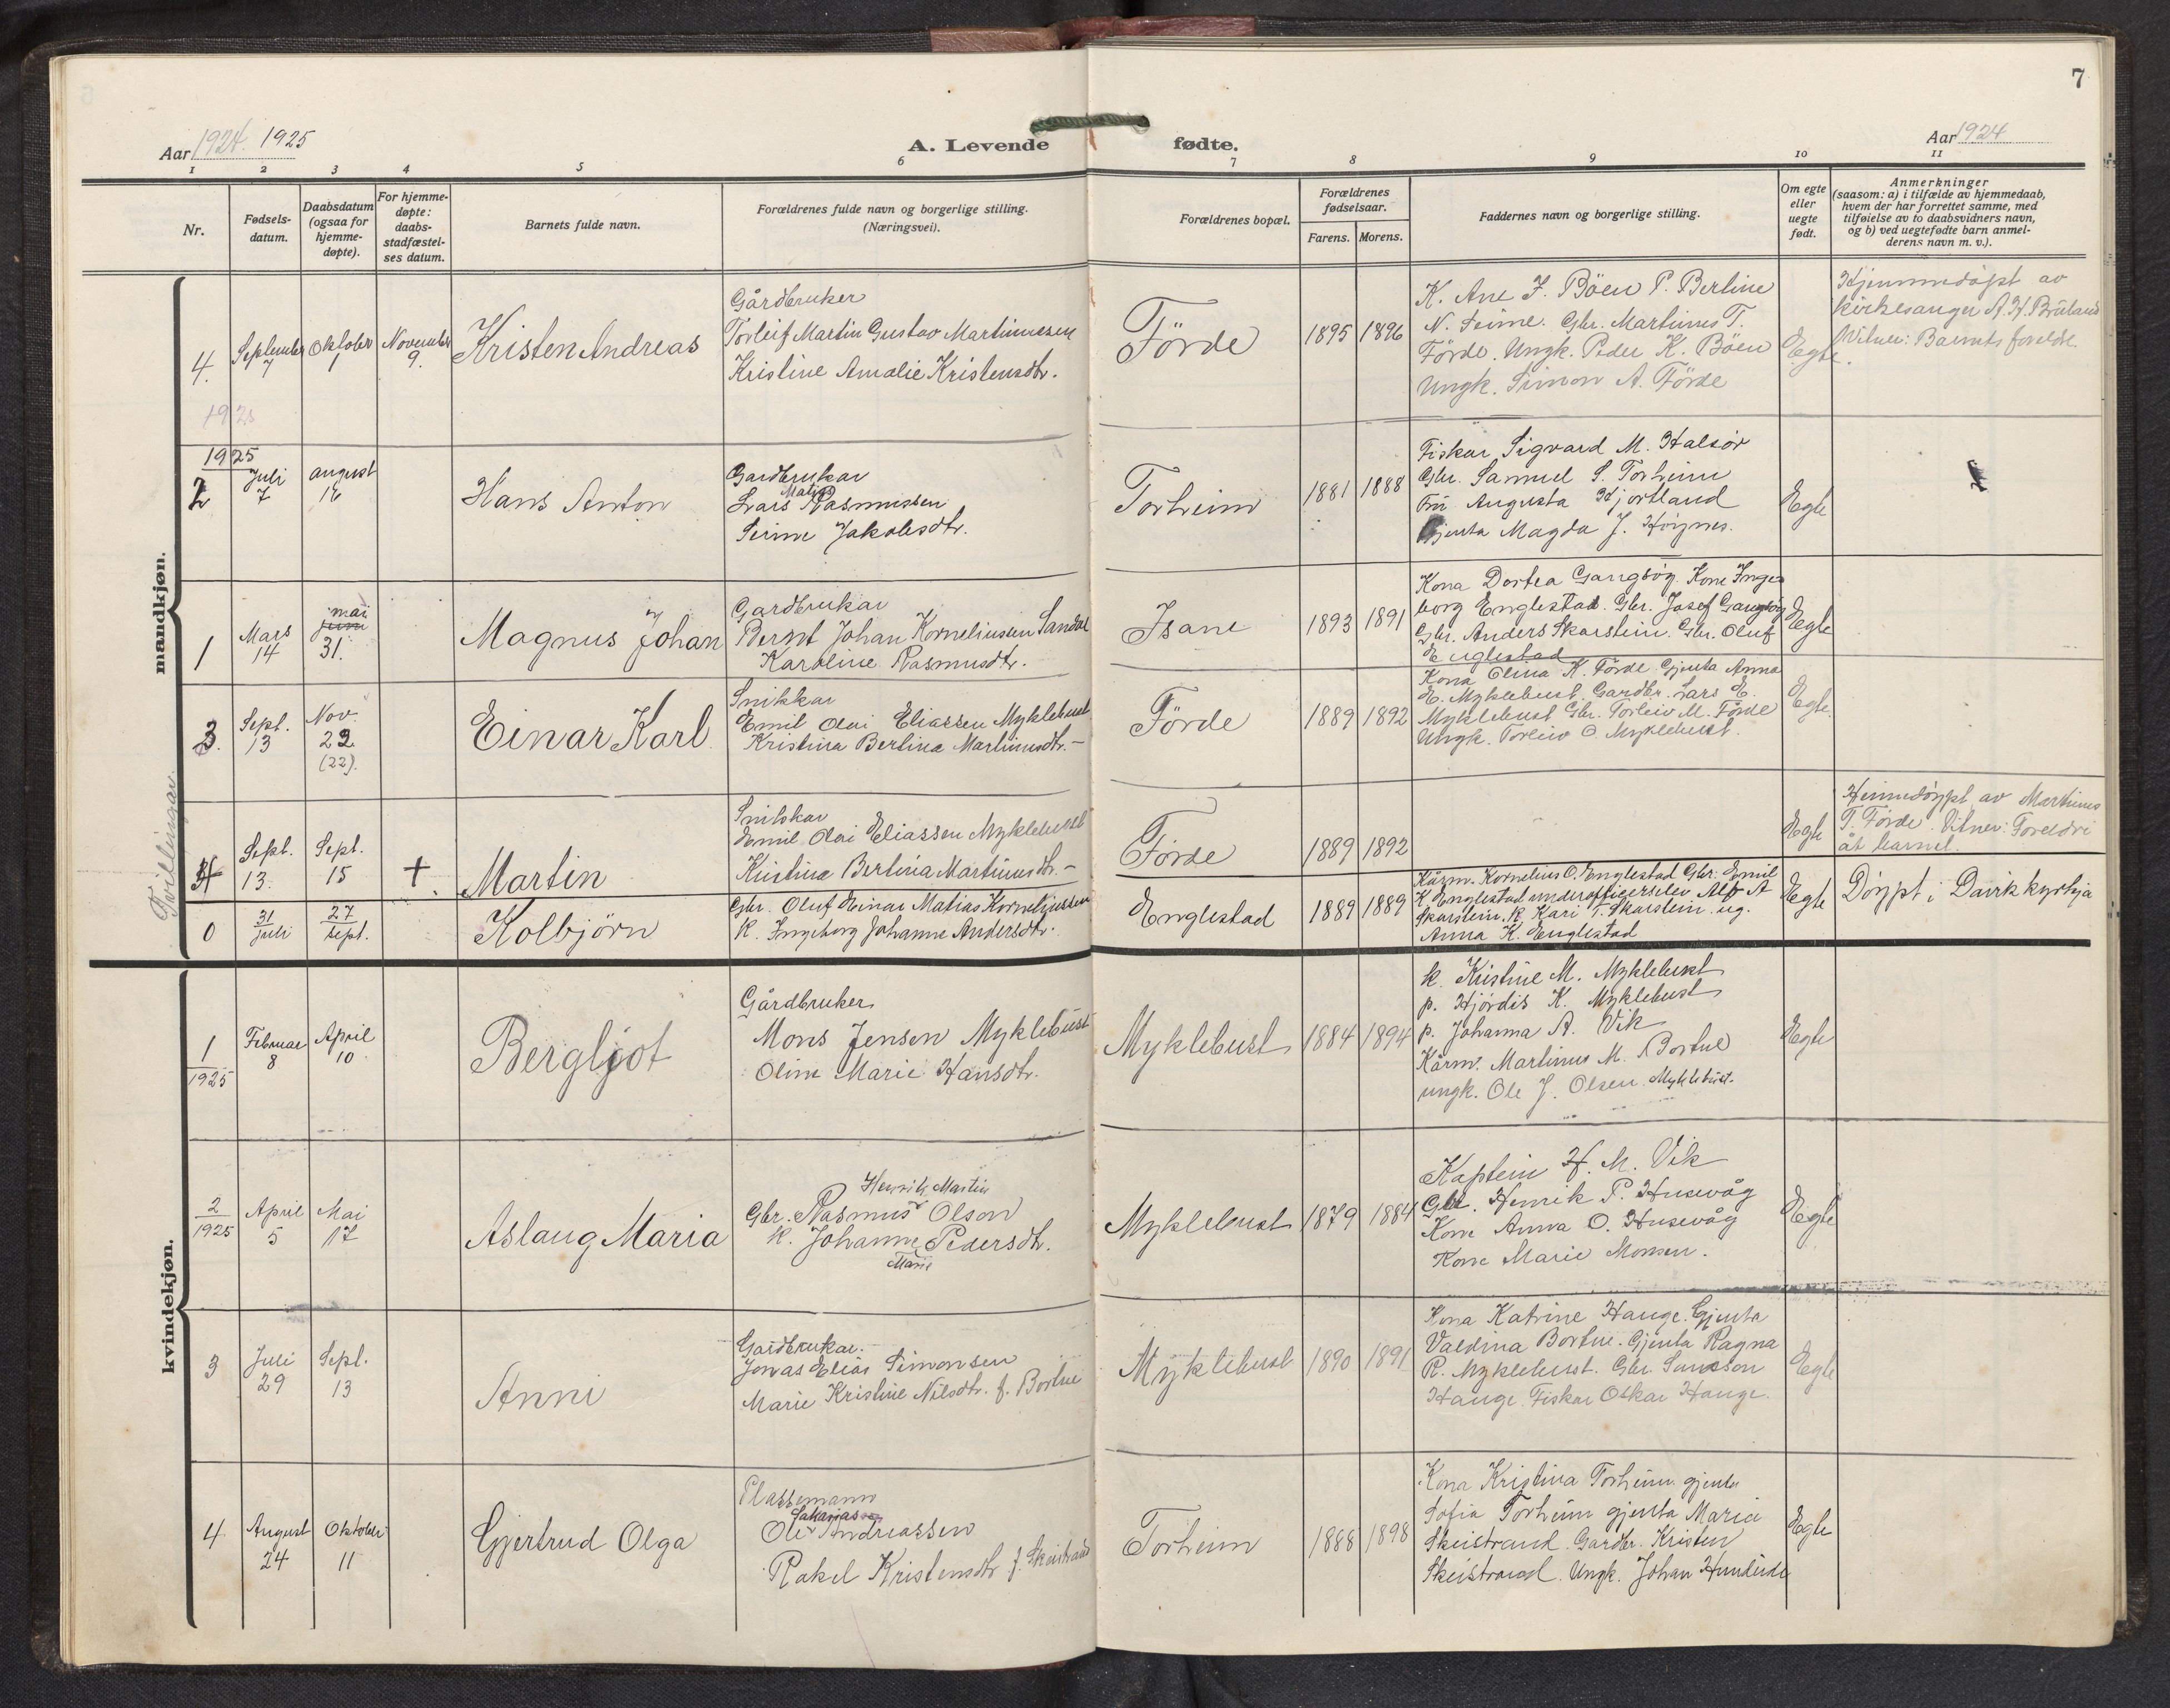 7
Aar 1924. 1925
A. Levende fødte.
Aar 1924
1 2 3 4 5 6 7 8 9 10 11
Nr.
Fødsels-
datum.
Daabsdatum
(ogsaa for
hjemme-
døpte).
For hjemme-
døpte:
daabs-
stadfæstel-
ses datum.
Barnets fulde navn.
Forældrenes fulde navn og borgerlige stilling.
(Næringsvei).
Forældrenes bopæl.
Forældrenes
fødselsaar.
Farens. Morens.
Faddernes navn og borgerlige stilling.
Om egte
eller
uegte
født.
Anmerkninger
(saasom: a) i tilfælde av hjemmedaab,
hvem der har forrettet samme, med
tilføielse av to daabsvidners navn,
og b) ved uegtefødte barn anmel-
derens navn m. v.).
mandkjøn.
4.
September
7
Oktober
1
November
9.
Kristen Andreas
Gårdbruker
Torleif Martin Gustav Martinussen
Kristine Amalie Kristensdtr.
Förde
1895 1896
K. Ane J. Böen P. Berline
N. Leime. Gbr. Martinus T.
Förde. Ungk. Peder K. Böen
Ungk. Simon A. Förde
Egte.
Hjemmedöpt av
kirkesanger A. H. Bruland
Vitner: Barnets foreldre
1925
1925
2
Juli
7
august
16
Hans Anton
Gardbrukar
Matias
Lars Rasmussen
Serine Jakobsdtr.
Torheim
1881 1888
Fiskar Sigvard M. Halsör
Gbr. Samuel S. Torheim
Fru Augusta Hjortland
Gjenta Magda J. Höynes.
Egte
1
Mars
14
mai
juni
31.
Magnus Johan
Gardbrukar
Bernt Johan Korneliussen Sandal
Karoline Rasmusdtr.
Isane
1893 1891
Kona Dortea Gangsöy. Kone Inge-
borg Englestad. Gbr. Josef Gangsöy
Gbr. Anders Skarstein. Gbr. Oluf
Englestad
Egte
3.
Sept.
13
Nov.
22
(22).
Einar Karl
Snikkar
Emil Olai Eliassen Myklebust
Kristina Berlina Martinusdtr. –
Förde
1889 1892
Kona Olina K. Förde. Gjenta Anna
E. Myklebust. Gardbr. Lars E.
Myklebust Gbr. Torleiv M. Förde
Ungk. Torleiv O. Myklebust.
Egte.
Tvillingar.
4
Sept.
13.
Sept.
15
+.
Martin
Snikkar
Emil Olai Eliassen Myklebust
Kristina Bertina Martinusdtr. –
Förde
1889 1892
Egte
Heimedöypt av Martinus
T. Förde. Vitner: Foreldri
åt barnet.
0
31
Juli
27
sept.
Kolbjörn
Gbr. Oluf Heinar Matias Korneliussen
K. Ingeborg Johanne Andersdtr.
Englestad
1889 1889
Kårm. Kornelius O. Englestad Gbr. Emil
K. Englestad underofficerselev Alf A
Skarstein. K. Kari T. Skarstein. ug.
Anna K. Englestad
Egte
Döypt i Davik kyrkja
kvindekjøn.
1
1925
Februar
8
April
10
Bergljot
Gårdbruker
Mons Jensen Myklebust
Oline Marie Hansdtr.
Myklebust
1884 1894
k. Kristine M. Myklebust
p. Hjördis K. Myklebust
p. Johanna A. Vik
Kårm. Martinus M. Bortne
ungk. Ole J. Olsen Myklebust.
Egte
2
1925
April
5
Mai
17
Aslaug Maria
Henrik Martin
Gbr. Rasmus Olson
k. Johanne Pedersdtr.
Marie
Myklebust
1879 1884
Kaptein H. M. Vik
Gbr. Henrik P. Husevåg
Kone Anna O. Husevåg
Kone Marie Monsen.
Egte
3
Juli
29
Sept.
13
Anni
Gardbrukar.
Jonas Elias Simonsen
Marie Kristine Nilsdtr. f. Bortne
Myklebust
1890 1891
Kona Katrine Hauge. Gjenta
Valdina Bortne. Gjenta Ragna
R. Myklebust. Gbr. Simeon
Hauge. Fiskar Oskar Hauge.
Egte
4
August
24
Oktober
11
Gjertrud Olga
Plassemann
Sakarias
Ole Andreassen
Rakel Kristensdtr f. Skeistrand
Torheim
1888 1898
Kona Kristina Torheim gjenta
Sofia Torheim gjenta Maria
Skeistrand. Gardbr. Kristen
Skeistrand. Ungk. Johan Hundeide
Egte